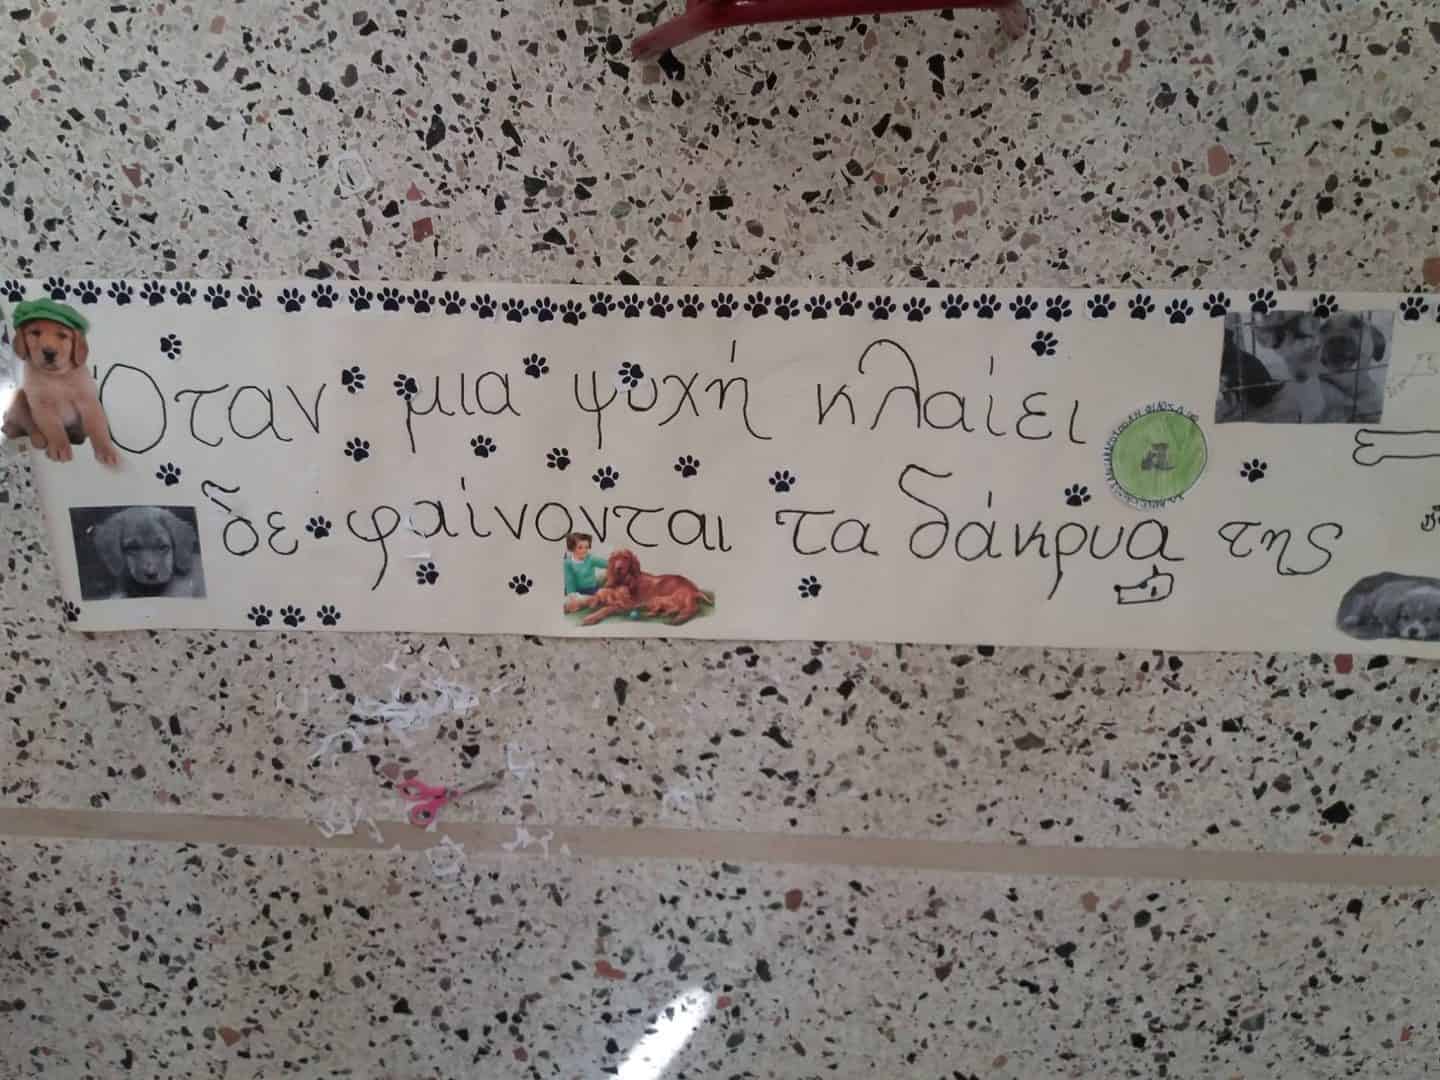 Όταν μια ψυχή κλαίει
δε φαίνονται τα δάκρυα της